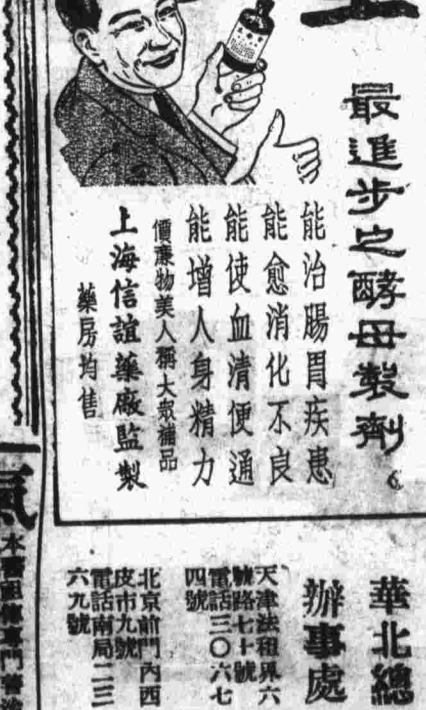 最進步之酵母製劑
能治腸胃疾患
能愈消化不良
能使血清便通
能增人身精力
價廉物美人稱大眾補品
上海信誼藥廠監製
藥房均售
華北總
辦事處
天津法租界六
號路七十號
電話三〇六七
四號
北京前門內西
皮市九號
電話南局二三
六九號
氣